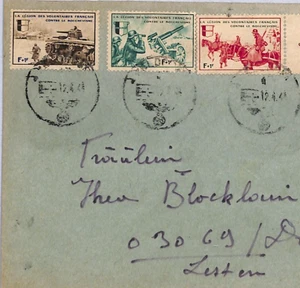 LA LÉGION DES VOLONTAIRES FRANÇAIS
CONTRE LE BOLCHEVISME
F+F
LA LÉGION DES VOLONTAIRES FRANÇAIS
CONTRE LE BOLCHEVISME
F+F
LA LÉGION DES VOLONTAIRES FRANÇAIS
CONTRE LE BOLCHEVISME
F+F
Fräulein
Thea Blocklain
03069/D